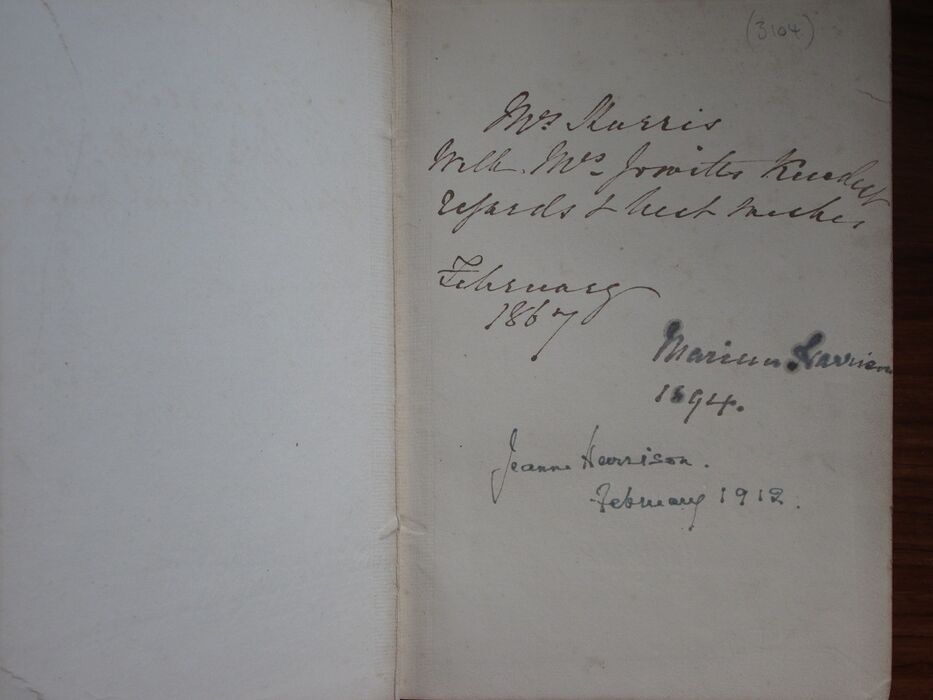 (3104)
Mrs Harris
With Mrs Jowitts Kindest
regards & best wishes
February
1867
Marion Harrison
1894.
Jeanne Harrison.
February 1912.